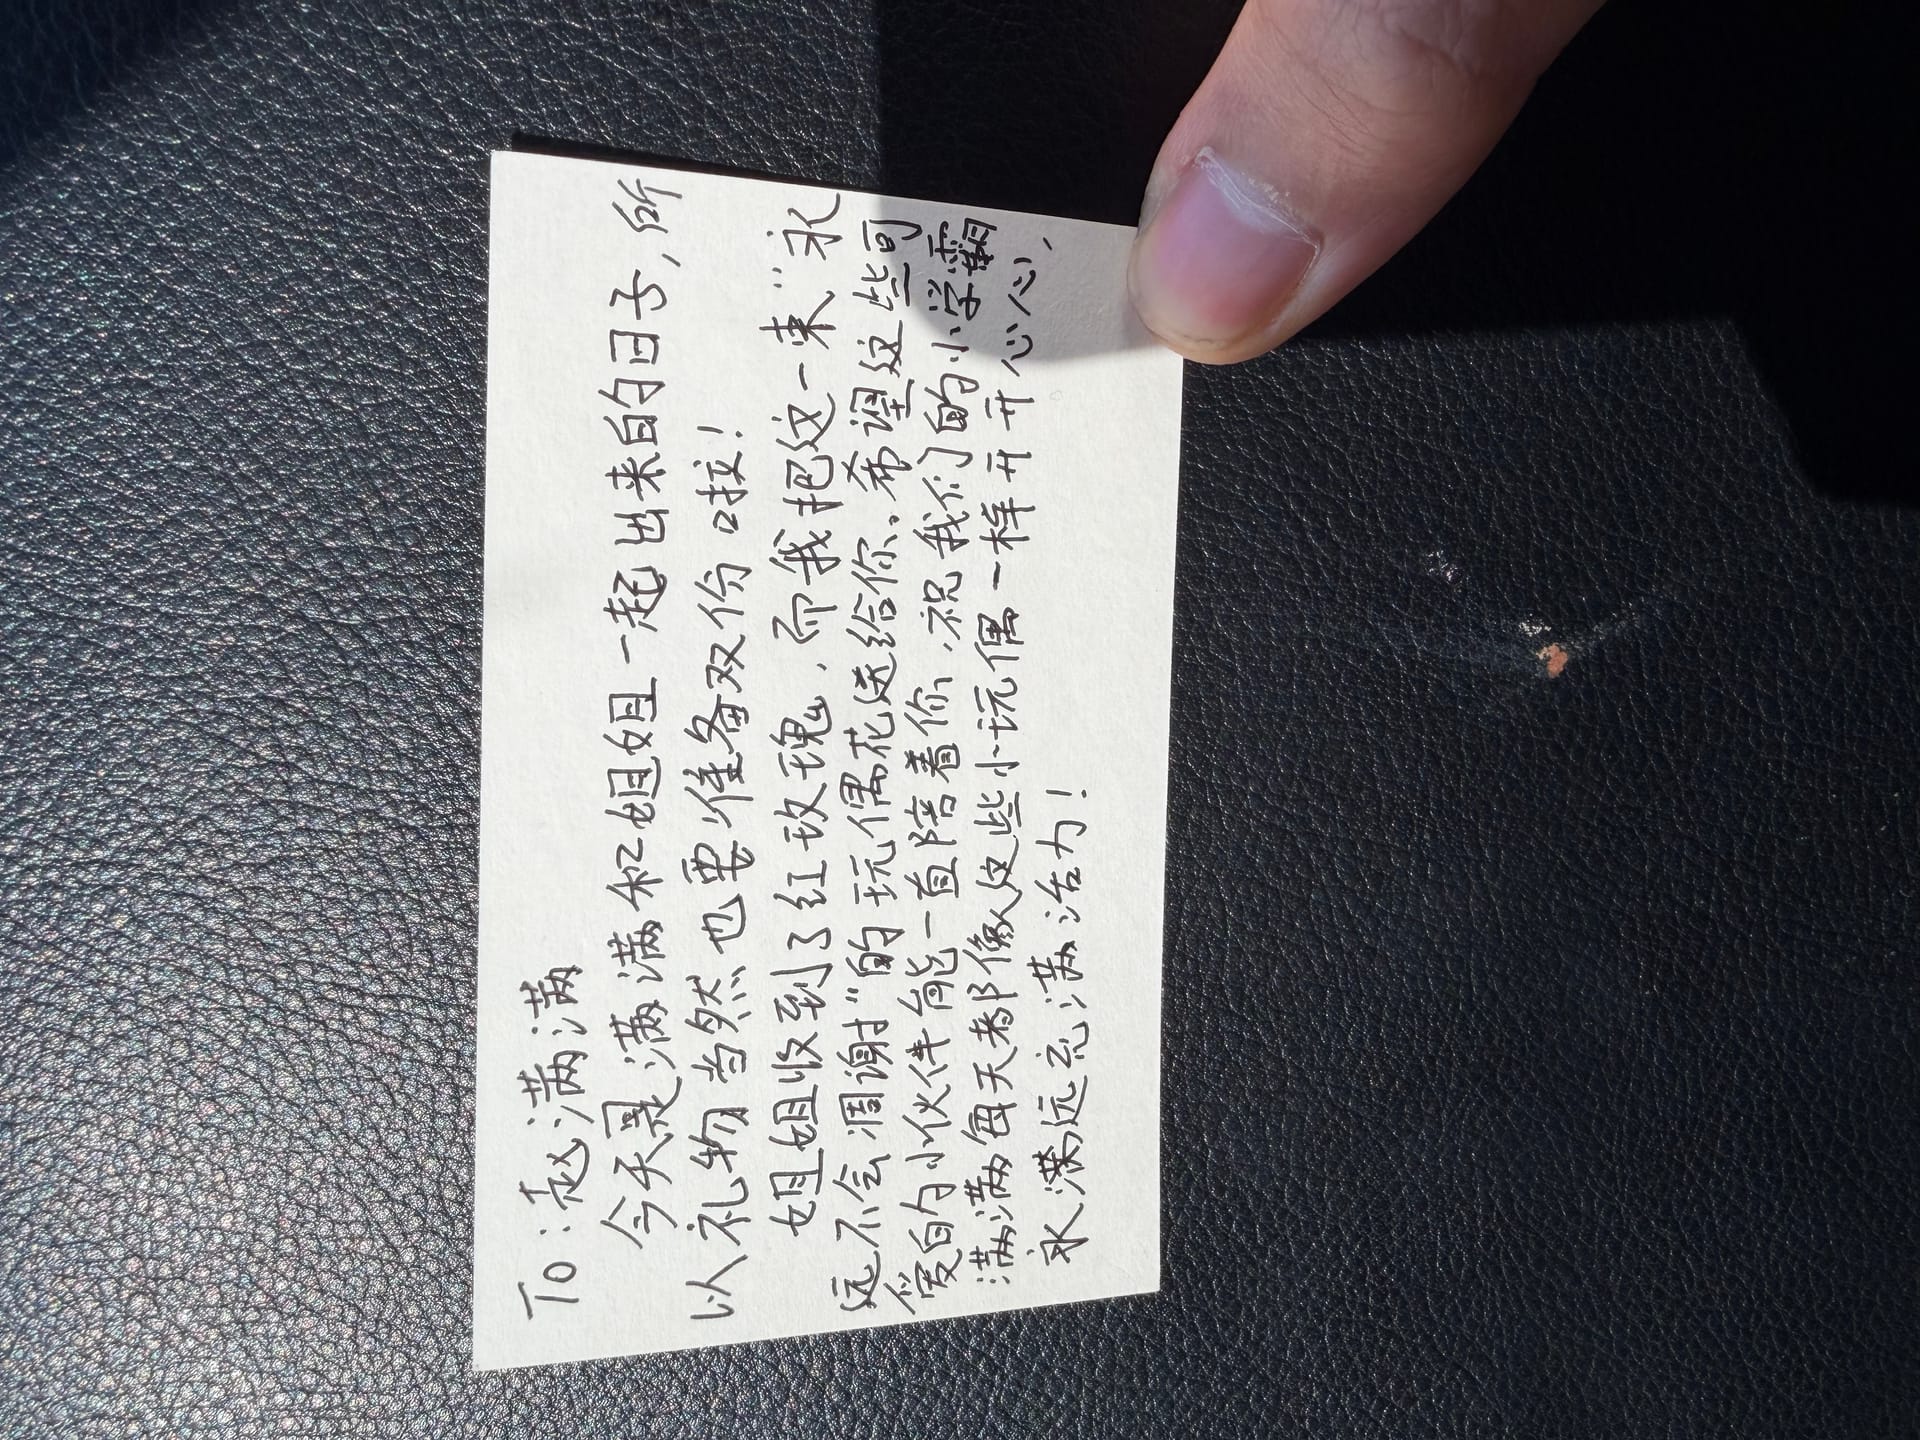 To:赵满满
今天是满满和姐姐一起出来的日子,所
以礼物当然也要准备双份啦!
姐姐收到了红玫瑰,而我把这一束“永
远不会凋谢”的玩偶花送给你。希望这些可
爱的小伙伴能一直陪着你,祝我们的小学霸
满满每天都像这些小玩偶一样开开心心,
永远充满活力!